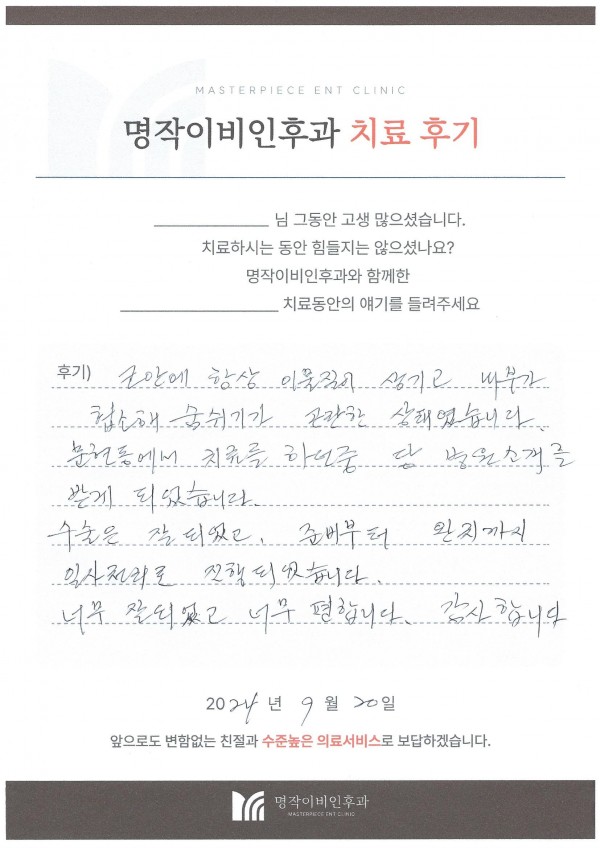 MASTERPIECE ENT CLINIC
명작이비인후과 치료 후기
님 그동안 고생 많으셨습니다.
치료하시는 동안 힘들지는 않으셨나요?
명작이비인후과와 함께한
치료동안의 얘기를 들려주세요
후기) 코안에 항상 이물질이 생기고 내부가
협소해 숨쉬기가 곤란한 상태였습니다.
문현동에서 치료를 하던중 당 병원소개를
받게 되었습니다.
수술은 잘 되었고, 준비부터 완치까지
일사천리로 진행되었습니다.
너무 잘되었고 너무 편합니다. 감사합니다
2024년 9월 20일
앞으로도 변함없는 친절과 수준높은 의료서비스로 보답하겠습니다.
명작이비인후과
MASTERPIECE ENT CLINIC